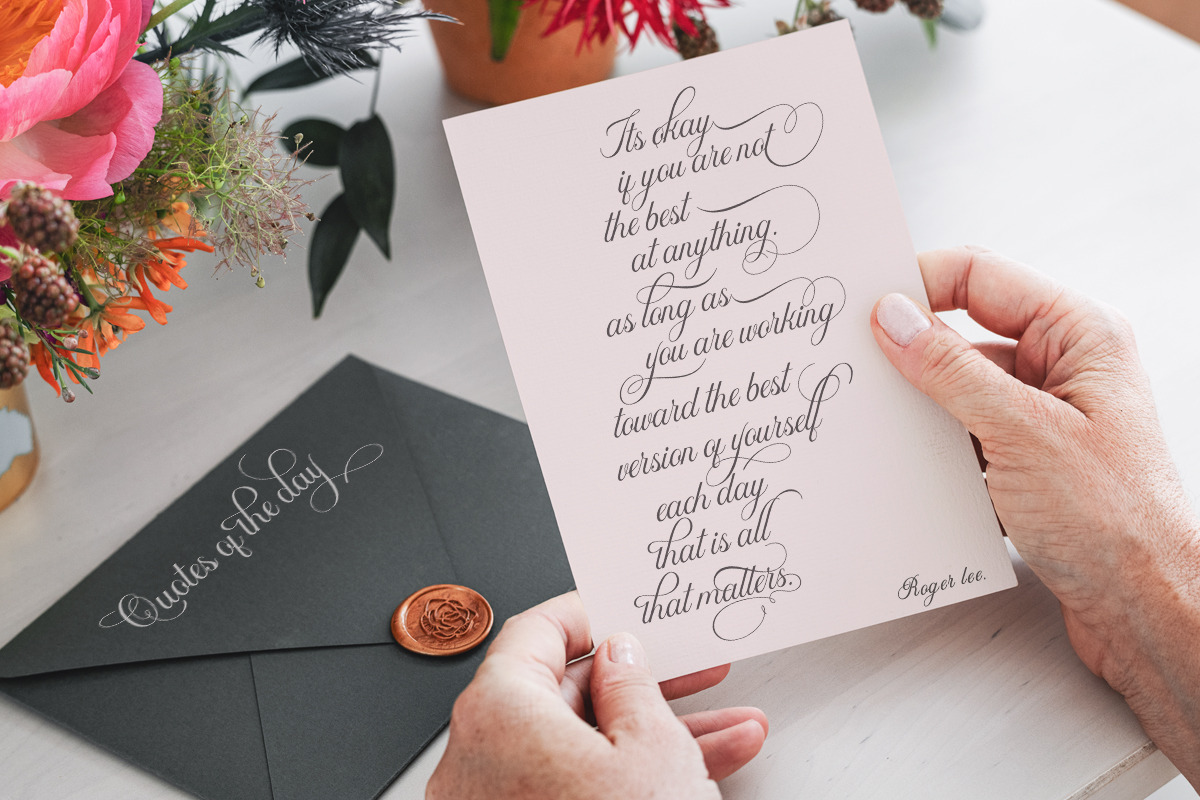 Its okay
if you are not
the best
at anything.
as long as
you are working
toward the best
version of yourself
each day
that is all
that matters.
Roger lee.
Quotes of the day